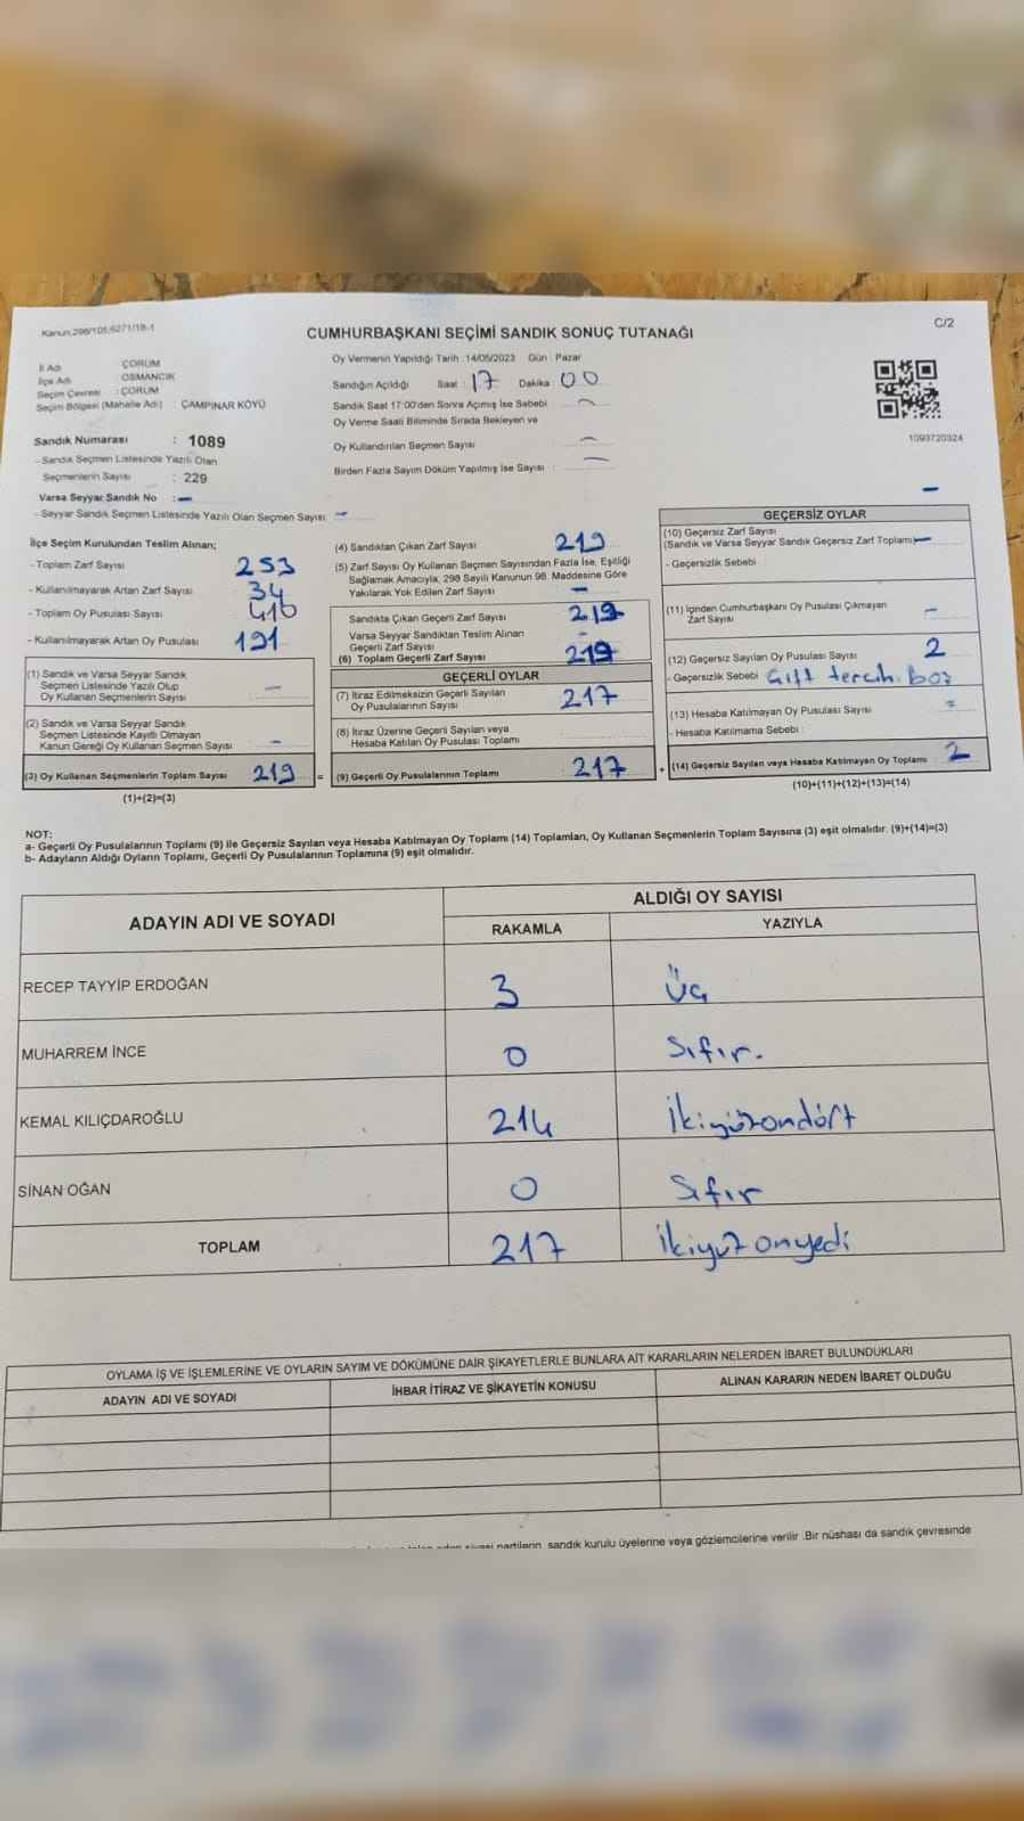 Kanun,298/105,6271/18-1
C/2
CUMHURBAŞKANI SEÇİMİ SANDIK SONUÇ TUTANAĞI
İl Adı : ÇORUM
İlçe Adı : OSMANCIK
Seçim Çevresi : ÇORUM
Seçim Bölgesi (Mahalle Adı) : ÇAMPINAR KÖYÜ
Sandık Numarası : 1089
- Sandık Seçmen Listesinde Yazılı Olan
Seçmenlerin Sayısı : 229
Varsa Seyyar Sandık No : -
- Seyyar Sandık Seçmen Listesinde Yazılı Olan Seçmen Sayısı -
Oy Vermenin Yapıldığı Tarih : 14/05/2023 Gün : Pazar
Sandığın Açıldığı Saat : 17 Dakika : 00
Sandık Saat 17:00'den Sonra Açılmış İse Sebebi -
Oy Verme Saati Bitiminde Sırada Bekleyen ve
Oy Kullandırılan Seçmen Sayısı -
Birden Fazla Sayım Döküm Yapılmış İse Sayısı : -
1093720324
İlçe Seçim Kurulundan Teslim Alınan;
- Toplam Zarf Sayısı 253
- Kullanılmayarak Artan Zarf Sayısı 34
- Toplam Oy Pusulası Sayısı 410
- Kullanılmayarak Artan Oy Pusulası 191
(1) Sandık ve Varsa Seyyar Sandık
Seçmen Listesinde Yazılı Olup
Oy Kullanan Seçmenlerin Sayısı -
(2) Sandık ve Varsa Seyyar Sandık
Seçmen Listesinde Kayıtlı Olmayan
Kanun Gereği Oy Kullanan Seçmen Sayısı -
(3) Oy Kullanan Seçmenlerin Toplam Sayısı 219 =
(1)+(2)=(3)
(4) Sandıktan Çıkan Zarf Sayısı 219
(5) Zarf Sayısı Oy Kullanan Seçmen Sayısından Fazla İse, Eşitliği
Sağlamak Amacıyla, 298 Sayılı Kanunun 98. Maddesine Göre
Yakılarak Yok Edilen Zarf Sayısı -
Sandıkta Çıkan Geçerli Zarf Sayısı 219
Varsa Seyyar Sandıktan Teslim Alınan
Geçerli Zarf Sayısı -
(6) Toplam Geçerli Zarf Sayısı 219
GEÇERLİ OYLAR
(7) İtiraz Edilmeksizin Geçerli Sayılan
Oy Pusulalarının Sayısı 217
(8) İtiraz Üzerine Geçerli Sayılan veya
Hesaba Katılan Oy Pusulası Toplamı
(9) Geçerli Oy Pusulalarının Toplamı 217 +
-
GEÇERSİZ OYLAR
(10) Geçersiz Zarf Sayısı
(Sandık ve Varsa Seyyar Sandık Geçersiz Zarf Toplamı) -
- Geçersizlik Sebebi
(11) İçinden Cumhurbaşkanı Oy Pusulası Çıkmayan
Zarf Sayısı -
(12) Geçersiz Sayılan Oy Pusulası Sayısı 2
- Geçersizlik Sebebi Çift tercih. boş
(13) Hesaba Katılmayan Oy Pusulası Sayısı -
- Hesaba Katılmama Sebebi :
(14) Geçersiz Sayılan veya Hesaba Katılmayan Oy Toplamı 2
(10)+(11)+(12)+(13)=(14)
NOT:
a- Geçerli Oy Pusulalarının Toplamı (9) ile Geçersiz Sayılan veya Hesaba Katılmayan Oy Toplamı (14) Toplamları, Oy Kullanan Seçmenlerin Toplam Sayısına (3) eşit olmalıdır. (9)+(14)=(3)
b- Adayların Aldığı Oyların Toplamı, Geçerli Oy Pusulalarının Toplamına (9) eşit olmalıdır.
ADAYIN ADI VE SOYADI
ALDIĞI OY SAYISI
RAKAMLA YAZIYLA
RECEP TAYYİP ERDOĞAN 3 Üç
MUHARREM İNCE 0 Sıfır.
KEMAL KILIÇDAROĞLU 214 İkiyüzondört
SİNAN OĞAN 0 Sıfır
TOPLAM 217 İkiyüz onyedi
OYLAMA İŞ VE İŞLEMLERİNE VE OYLARIN SAYIM VE DÖKÜMÜNE DAİR ŞİKAYETLERLE BUNLARA AİT KARARLARIN NELERDEN İBARET BULUNDUKLARI
ADAYIN ADI VE SOYADI İHBAR İTİRAZ VE ŞİKAYETİN KONUSU ALINAN KARARIN NEDEN İBARET OLDUĞU
siyasi partilerin, sandık kurulu üyelerine veya gözlemcilerine verilir. Bir nüshası da sandık çevresinde